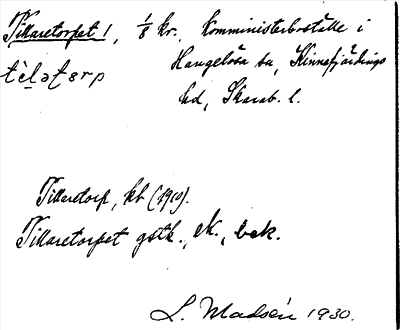 Tillaretorpet 1, 1/8 kr., Komministerboställe i
Hangelösa sn, Kinnefjärdings
hd, Skarab. l.
tèlatərp
Tillaretorp, kb (1910).
Tillaretorpet gstk., ek., bek.
L. Madsén 1930.